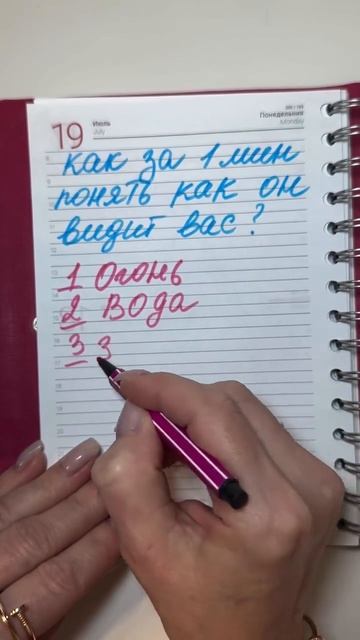 19
Июль
July
Понедельник
Monday
как за 1 мин
понять как он
видит вас?
1 Огонь
2 Вода
3 З